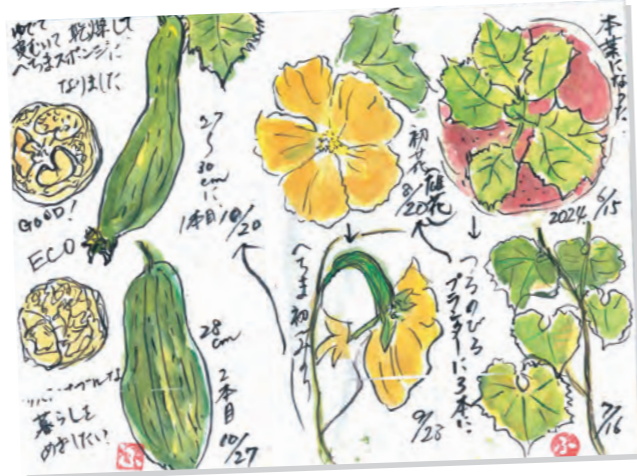 本葉になった
2024. 6/15
つるのびる
プランターに3本に
7/16
初花
雄花
8/20
へちま初みのり
9/23
27〜30cmに
1本目 10/20
28cm
2本目
10/27
ゆでて
皮むいて 乾燥して
へちまスポンジに
なりました
GOOD!
ECO
暮らしを
めざしたい!